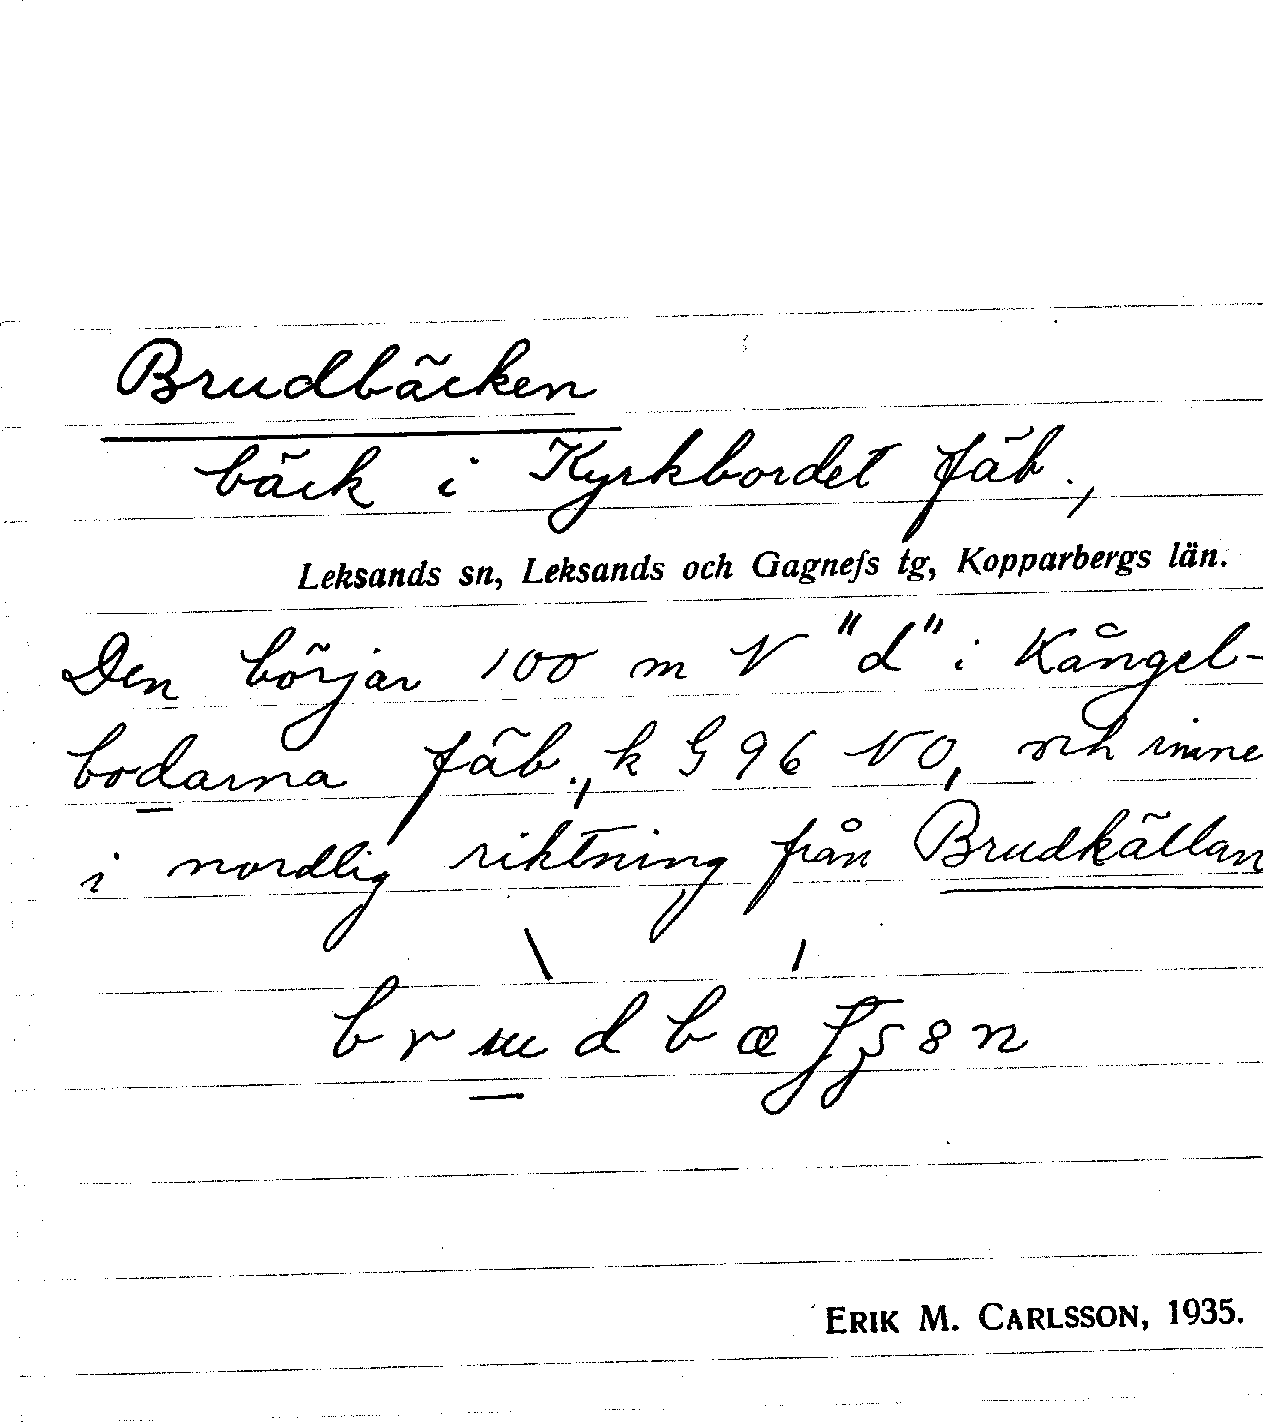 Brudbäcken
bäck i Kyrkbordet fäb.,
Leksands sn, Leksands och Gagnefs tg, Kopparbergs län.
Den börjar 100 m N "d" i Kångel-
bodarna fäb., k G 96 NO, och rinne
i nordlig riktning från Brudkällan
ERIK M. CARLSSON, 1935.